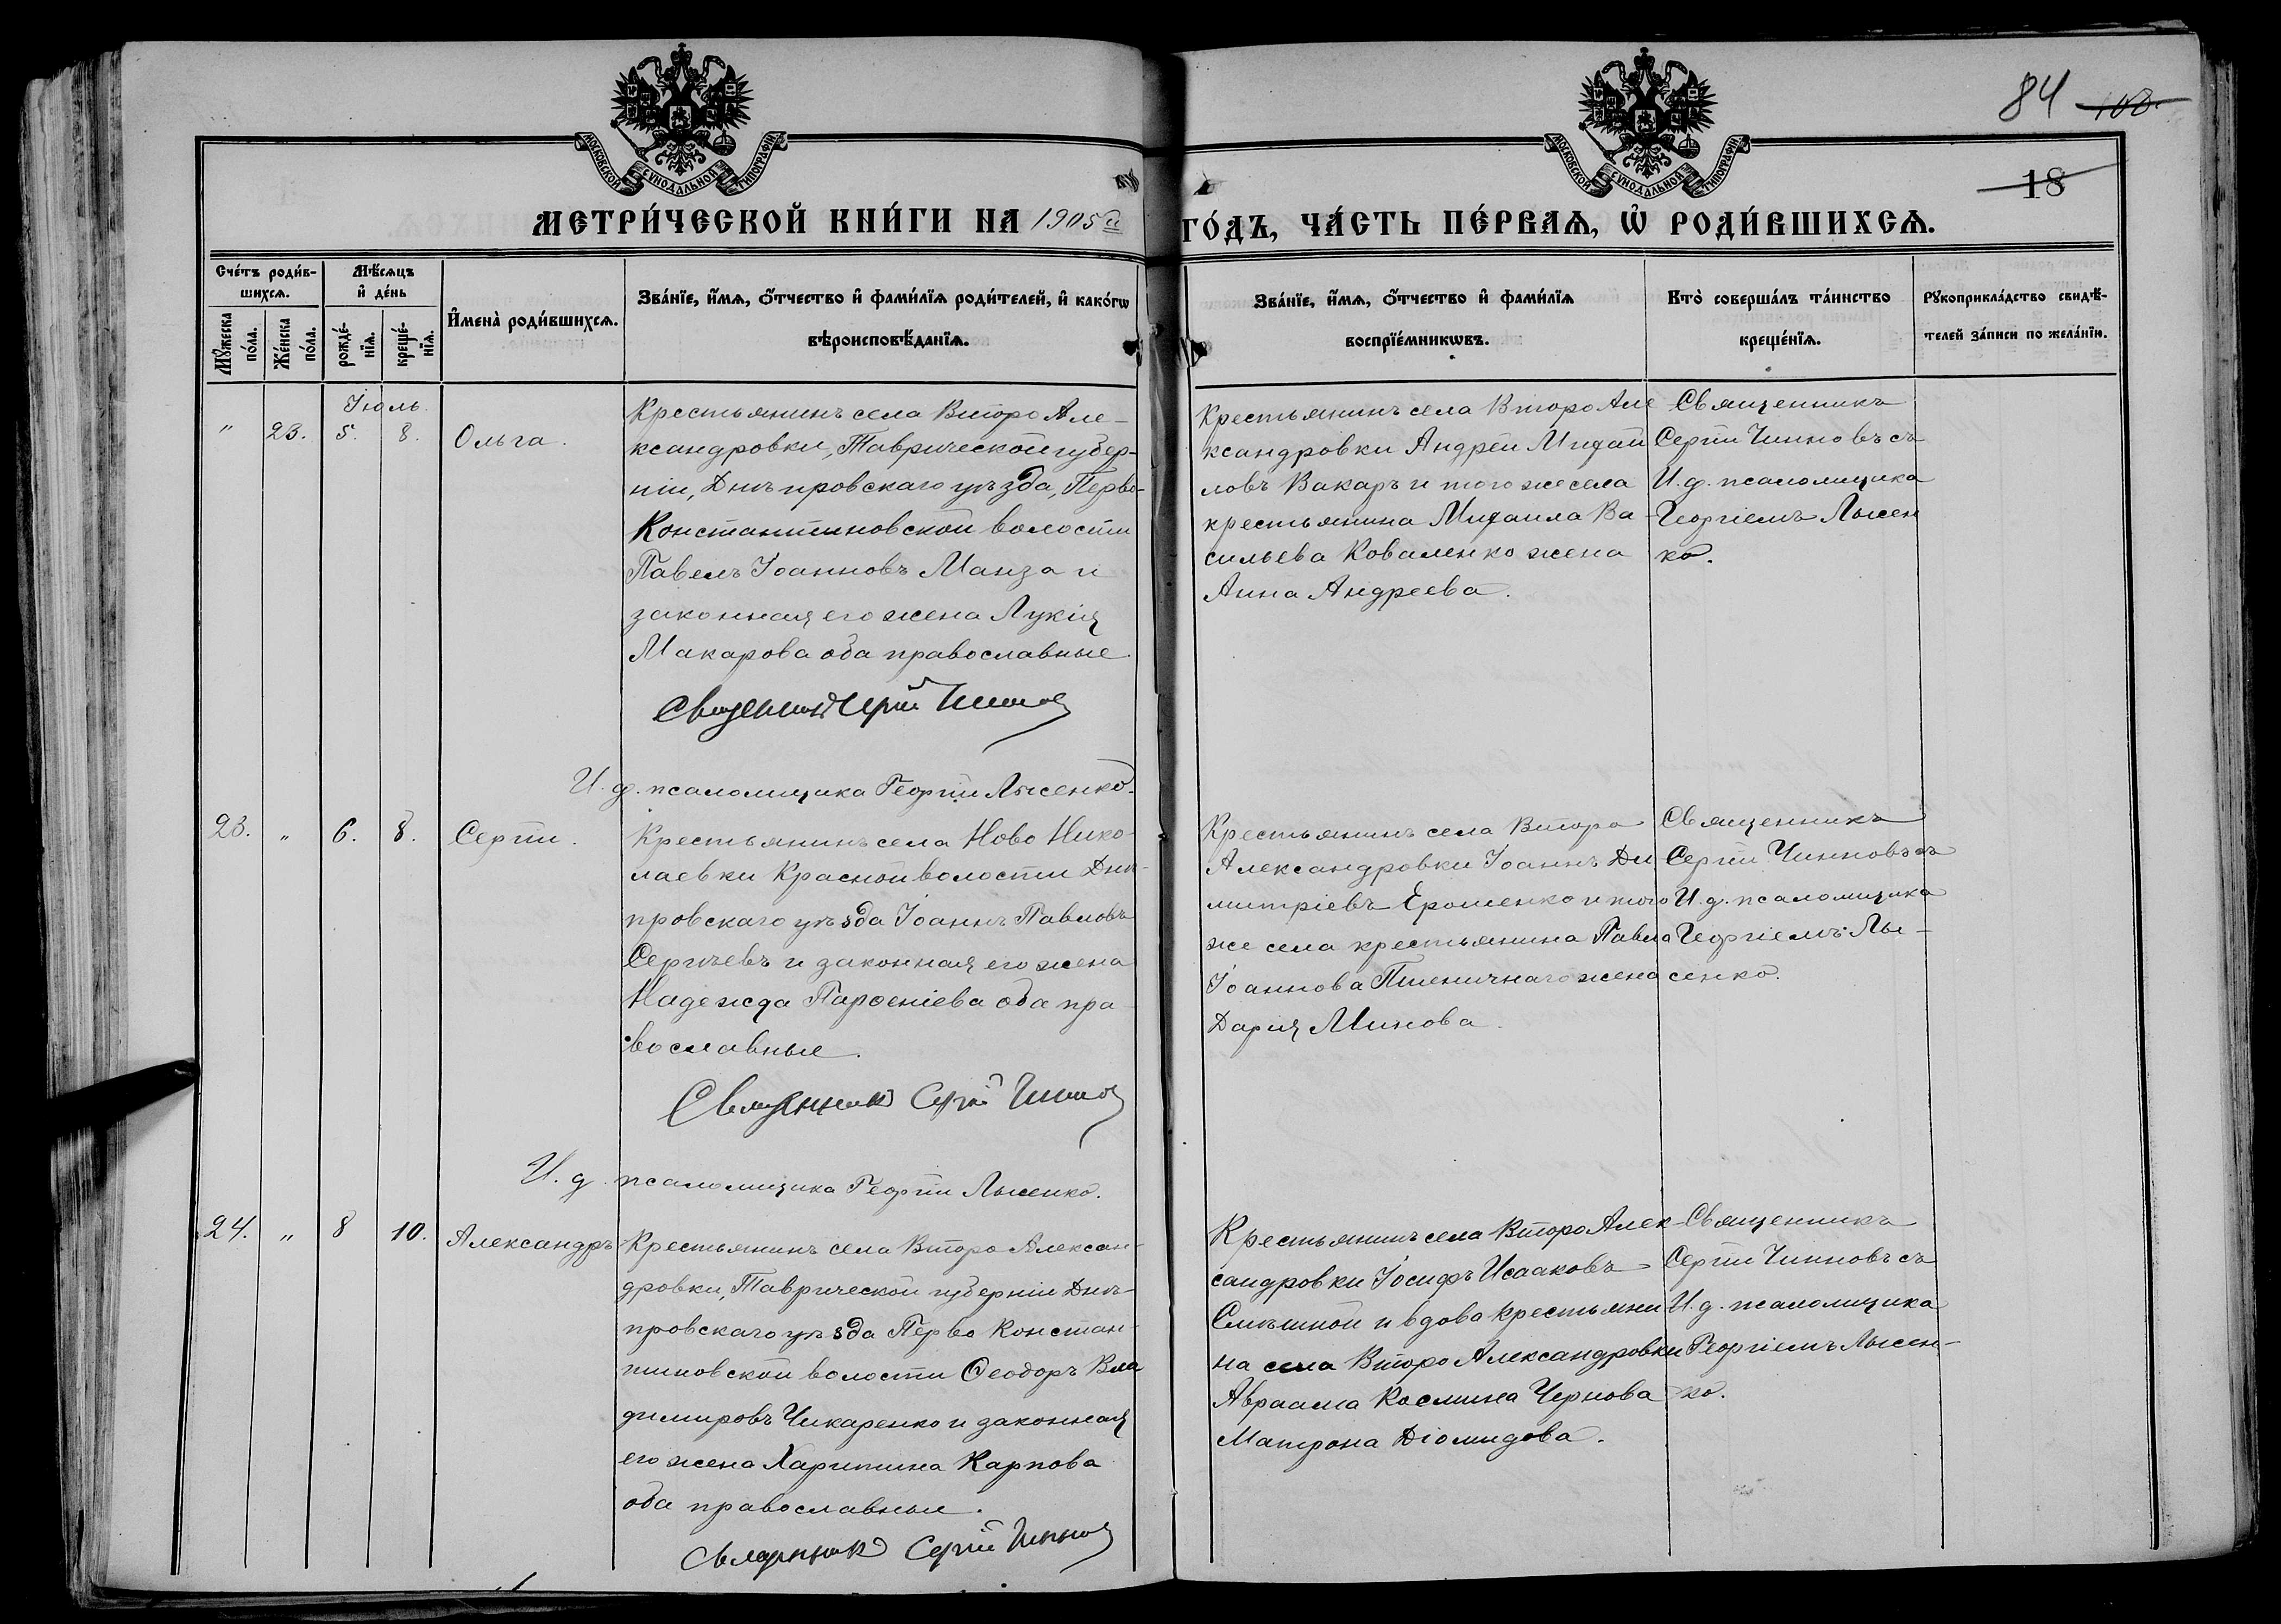 84 108
18
МОСКОВСКОЙ СѴНОДАЛЬНОЙ ТИПОГРАФІИ
МОСКОВСКОЙ СѴНОДАЛЬНОЙ ТИПОГРАФІИ
МЕТРИ́ЧЕСКОЙ КНИ́ГИ НА 1905й ГО́ДЪ, ЧА́СТЬ ПЕ́РВАѦ, Ѿ РОДИ́ВШИХСѦ.
Сче́тъ роди́в-
шихсѧ.
Мꙋ́жеска
по́ла.
Же́нска
по́ла.
Мѣ́сѧцъ
и҆ де́нь
рожде́-
нїѧ.
креще́-
нїѧ.
И҆мена̀ роди́вшихсѧ.
Зва́нїе, и҆́мѧ, ѻ҆́тчество и҆ фами́лїѧ роди́телей, и҆ како́гѡ
вѣроисповѣ́данїѧ.
Зва́нїе, и҆́мѧ, ѻ҆́тчество и҆ фами́лїѧ
воспрїе́мникѡвъ.
Кто̀ соверша́лъ та́инство
креще́нїѧ.
Рꙋкоприкла́дство свидѣ́-
телей за́писи по жела́нїю.
Іюль.
" 23. 5. 8. Ольга.
Крестьянинъ села Второ Але-
ксандровки, Таврической губер-
ніи, Днѣпровскаго уѣзда, Перво-
Константиновской волости
Павелъ Іоанновъ Манза и
законная его жена Лукія
Макарова оба православные.
Священникъ Сергій Чинновъ
И. д. псаломщика Георгій Лысенко.
Крестьянинъ села Второ Але
ксандровки Андрей Михай
ловъ Вакаръ и того же села
крестьянина Михаила Ва-
сильева Коваленко жена
Анна Андреева.
Священникъ
Сергій Чинновъ съ
И. д. псаломщика
Георгіемъ Лысен
ко.
23. " 6. 8. Сергій.
Крестьянинъ села Ново Нико-
лаевки Красной волости Днѣ-
провскаго уѣзда Іоаннъ Павловъ
Сергѣевъ и законная его жена
Надежда Парѳеніева оба пра-
вославные.
Священникъ Сергій Чинновъ
И. д. псаломщика Георгій Лысенко.
Крестьянинъ села Второ
Александровки Іоаннъ Ди
митріевъ Ерошенко и того
же села крестьянина Павла
Іоаннова Пшеничнаго жена
Дарія Минова.
Священникъ
Сергій Чинновъ съ
И. д. псаломщика
Георгіемъ Лы-
сенко.
24. " 8 10. Александръ
Крестьянинъ села Второ Алексан-
дровки, Таврической губерніи Днѣ-
провскаго уѣзда Перво Констан-
тиновской волости Ѳеодоръ Вла
димировъ Чикаренко и законная
его жена Харитина Карпова
оба православные.
Священникъ Сергій Чинновъ
Крестьянинъ села Второ Алек-
сандровки Іосифъ Исааковъ
Смѣшной и вдова крестьяни
на села Второ Александровки
Авраама Космина Чернова
Матрона Діомидова.
Священникъ
Сергій Чинновъ съ
И. д. псаломщика
Георгіемъ Лысен-
ко.